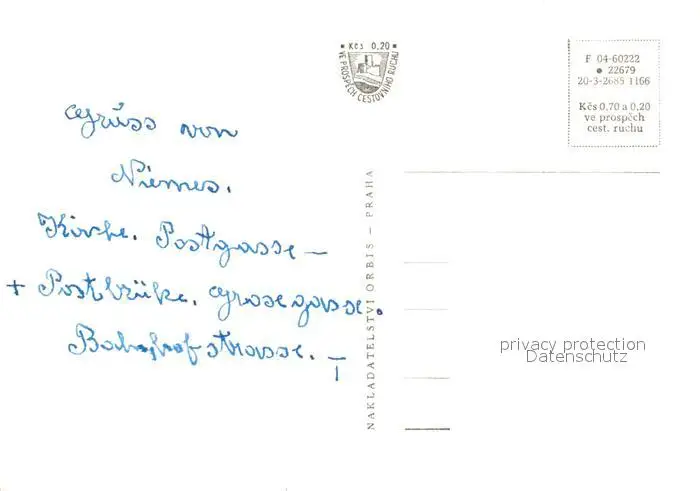 Kčs 0,20
VE PROSPĚCH CESTOVNÍHO RUCHU
F 04-60222
22679
20-3-2685 1166
Kčs 0,70 a 0,20
ve prospěch
cest. ruchu
Grüss von
Niemes.
Kirche. Postgasse –
+ Postbrüke. Grosegasse.
Bahnhofstrasse.
NAKLADATELSTVÍ ORBIS – PRAHA
privacy protection
Datenschutz